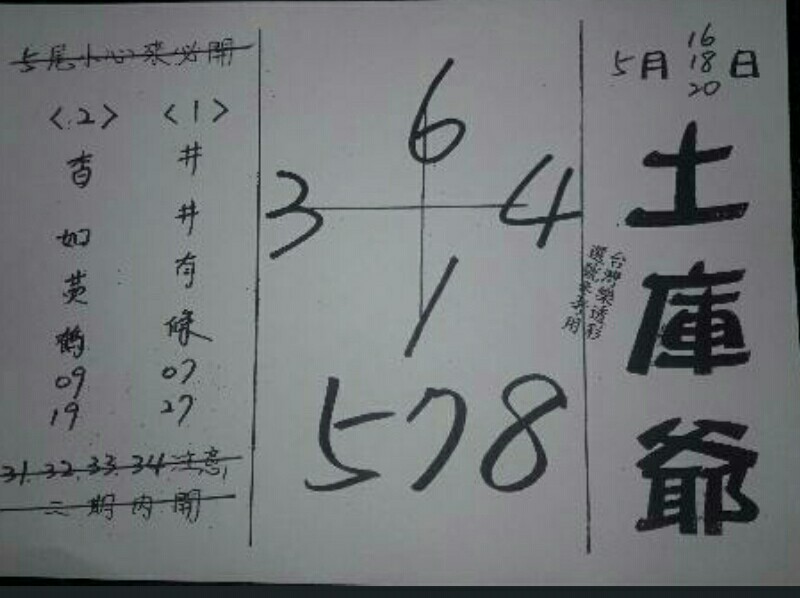 5月 16 18 20 日
土庫爺
台灣樂透彩
選號參考用
6
3 4
1
578
5尾小心來必開
<1>
井井有條
07
27
<2>
杳如黃鶴
09
19
31.32.33.34注意
二期內開